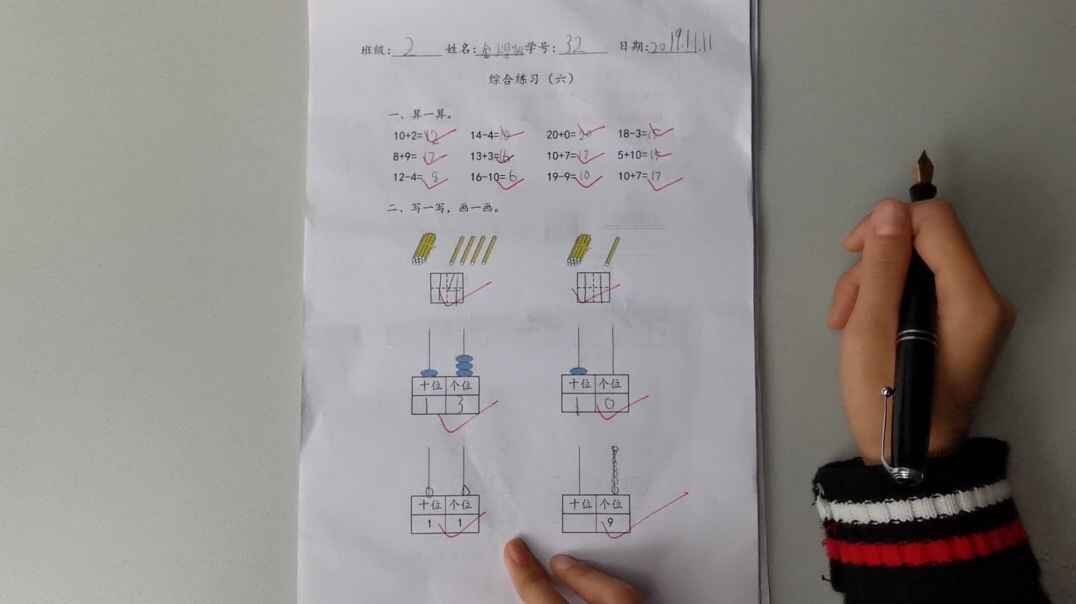 班级: 2 姓名: 学号: 32 日期: 2019.11.11
综合练习（六）
一、算一算。
10+2=12 14-4= 20+0=20 18-3=15
8+9=17 13+3=16 10+7=17 5+10=15
12-4=8 16-10=6 19-9=10 10+7=17
二、写一写，画一画。
14
十位 个位 十位 个位
1 3 1 0
十位 个位 十位 个位
1 1 9